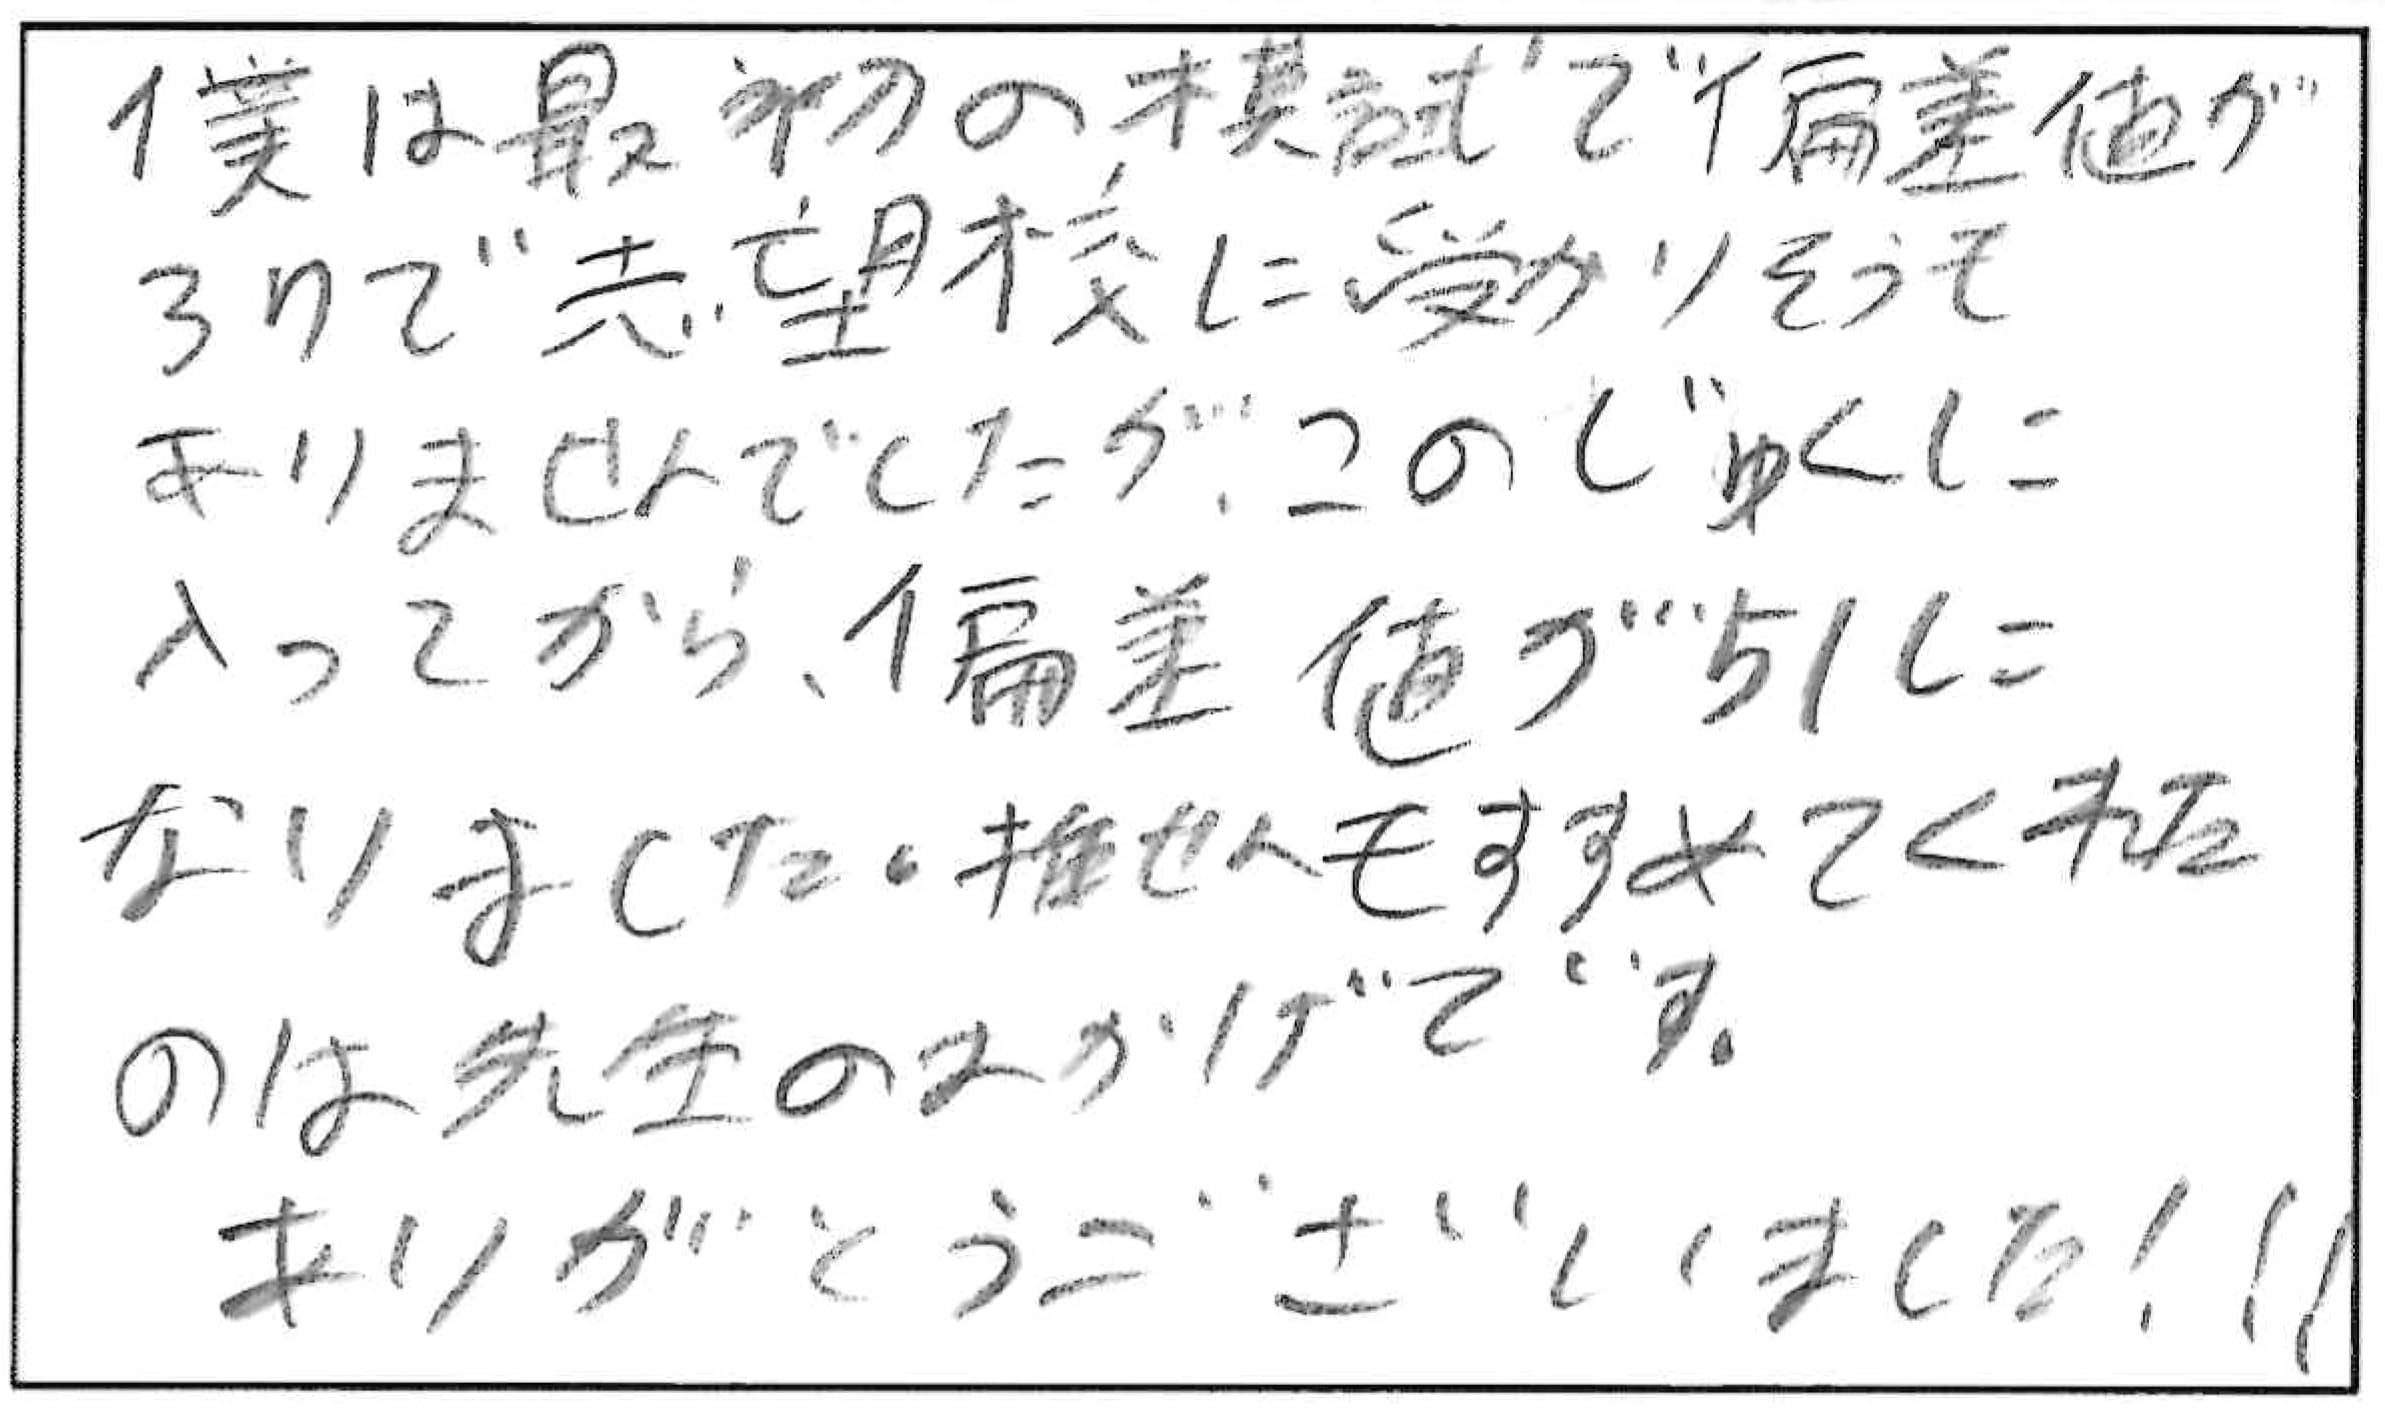 僕は最初の模試で偏差値が
37で志望校に受かりそうも
ありませんでしたが、このじゅくに
入ってから、偏差値が51に
なりました。推せんもすすめてくれた
のは先生のおかげです。
ありがとうございました!!!